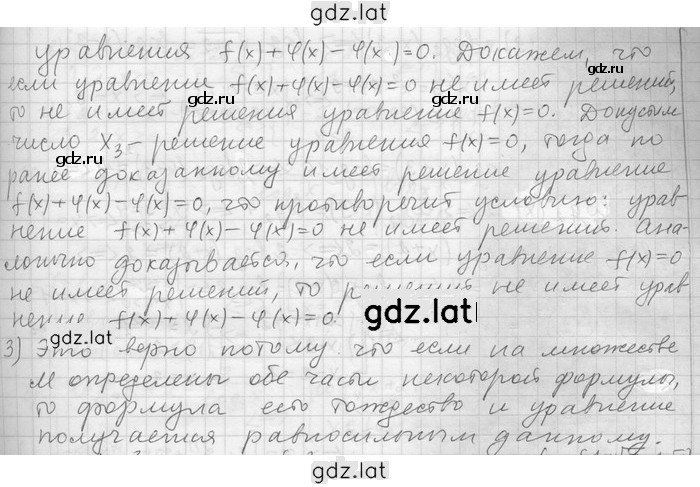 gdz.lat
уравнения f(x)+φ(x)-φ(x)=0. Докажем, что
gdz.ru gdz.ru
если уравнение f(x)+φ(x)-φ(x)=0 не имеет решений,
gdz.lat gdz.lat
то не имеет решения уравнение f(x)=0. Допустим
число x₃ - решение уравнения f(x)=0, тогда по
gdz.ru
ранее доказанному имеет решение уравнение
gdz.lat gdz.ru
f(x)+φ(x)-φ(x)=0, что противоречит условию: урав-
gdz.lat
нение f(x)+φ(x)-φ(x)=0 не имеет решений. Ана-
логично доказывается, что если уравнение f(x)=0
не имеет решений, то не имеет урав
gdz.ru
нение f(x)+φ(x)-φ(x)=0.
gdz.lat gdz.lat
3) Это верно потому что если на множестве
М определены обе части некоторой формулы,
то формула есть тождество и уравнение
получается равносильным данному.
gdz.lat